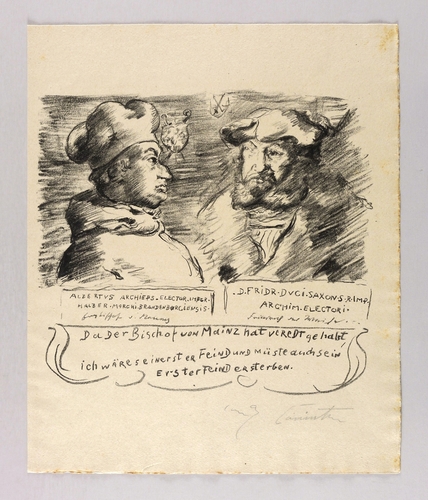 ALBERTVS ARCHIEPS. ELECTOR. IMPER.
HALBER. MARCHI. BRANDENBORGIEUSIS.
.D. FRIDR. DVCI. SAXONS. R. IMP.
ARCHIM. ELECTORI.
Da der Bischof von Mainz hat veredt gehabt,
ich wäre sein erster Feind und müste auch sein
Erster Feind ersterben.
Corinth